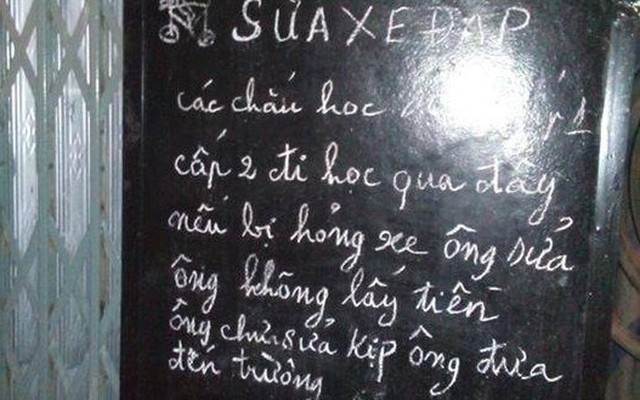 SỬA XE ĐẠP
các cháu học 1
cấp 2 đi học qua đây
nếu bị hỏng xe ông sửa
ông không lấy tiền
ông chưa sửa kịp ông đưa
đến trường